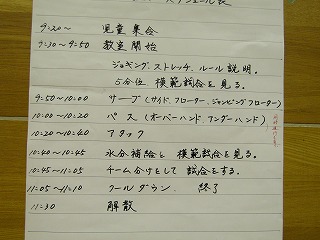 9:20〜 児童集合
9:30〜9:50 教室開始
ジョギング、ストレッチ、ルール説明。
5分位 模範試合を見る。
9:50〜10:00 サーブ(サイド、フローター、ジャンピングフローター)
10:00〜10:20 パス(オーバーハンド アンダーハンド)
10:20〜10:40 アタック
10:40〜10:45 水分補給と模範試合を見る。
10:45〜11:05 チーム分けをして試合をする。
11:05〜11:10 クールダウン. 終了
11:30 解散